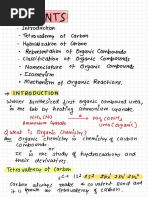 ENTS
- Introduction
- Tetravalency of Carbon
- Hybridization of Carbon
- Representation of Organic Compounds
- Classification of Organic Compounds
- Nomenclature of Organic Compounds
- Isomerism
- Mechanism of Organic Reactions.
→ INTRODUCTION
Wohler synthesised first organic compound urea,
in the lab by heating ammonium
NH4CNO → NH2CONH2
Ammonium Cyanate Urea (organic)
Q. What is Organic Chemistry?
Ans Organic chemistry is chemistry of carbon
Compounds
It is study of hydrocarbons and
their derivatives.
Tetravalency of Carbon
Carbon always make 4 covalent bond and
it is for tetravalency of carbon.